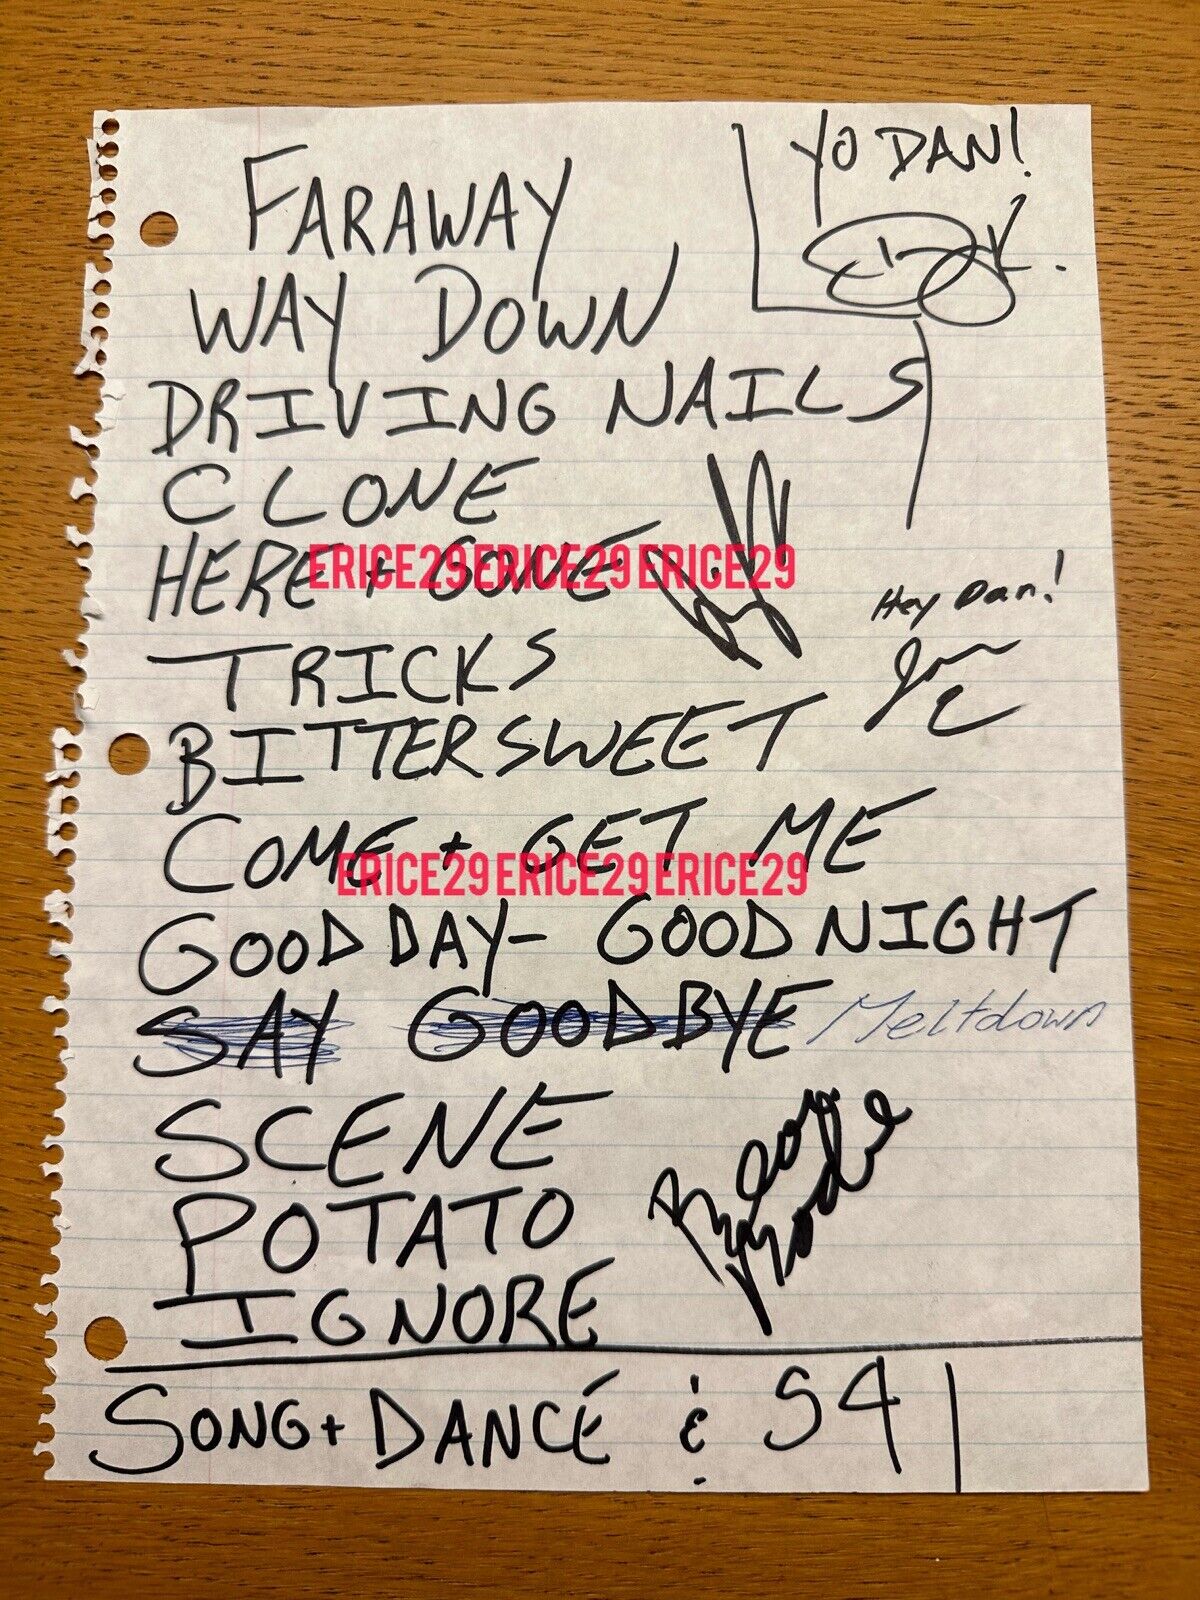 YO DAN!
FARAWAY
WAY DOWN
DRIVING NAILS
CLONE
HERE + GONE
ERICE29 ERICE29 ERICE29
Hey Dan!
TRICKS
BITTERSWEET
COME + GET ME
ERICE29 ERICE29 ERICE29
GOOD DAY - GOOD NIGHT
SAY GOODBYE Meltdown
SCENE
POTATO
IGNORE
SONG + DANCE & S4